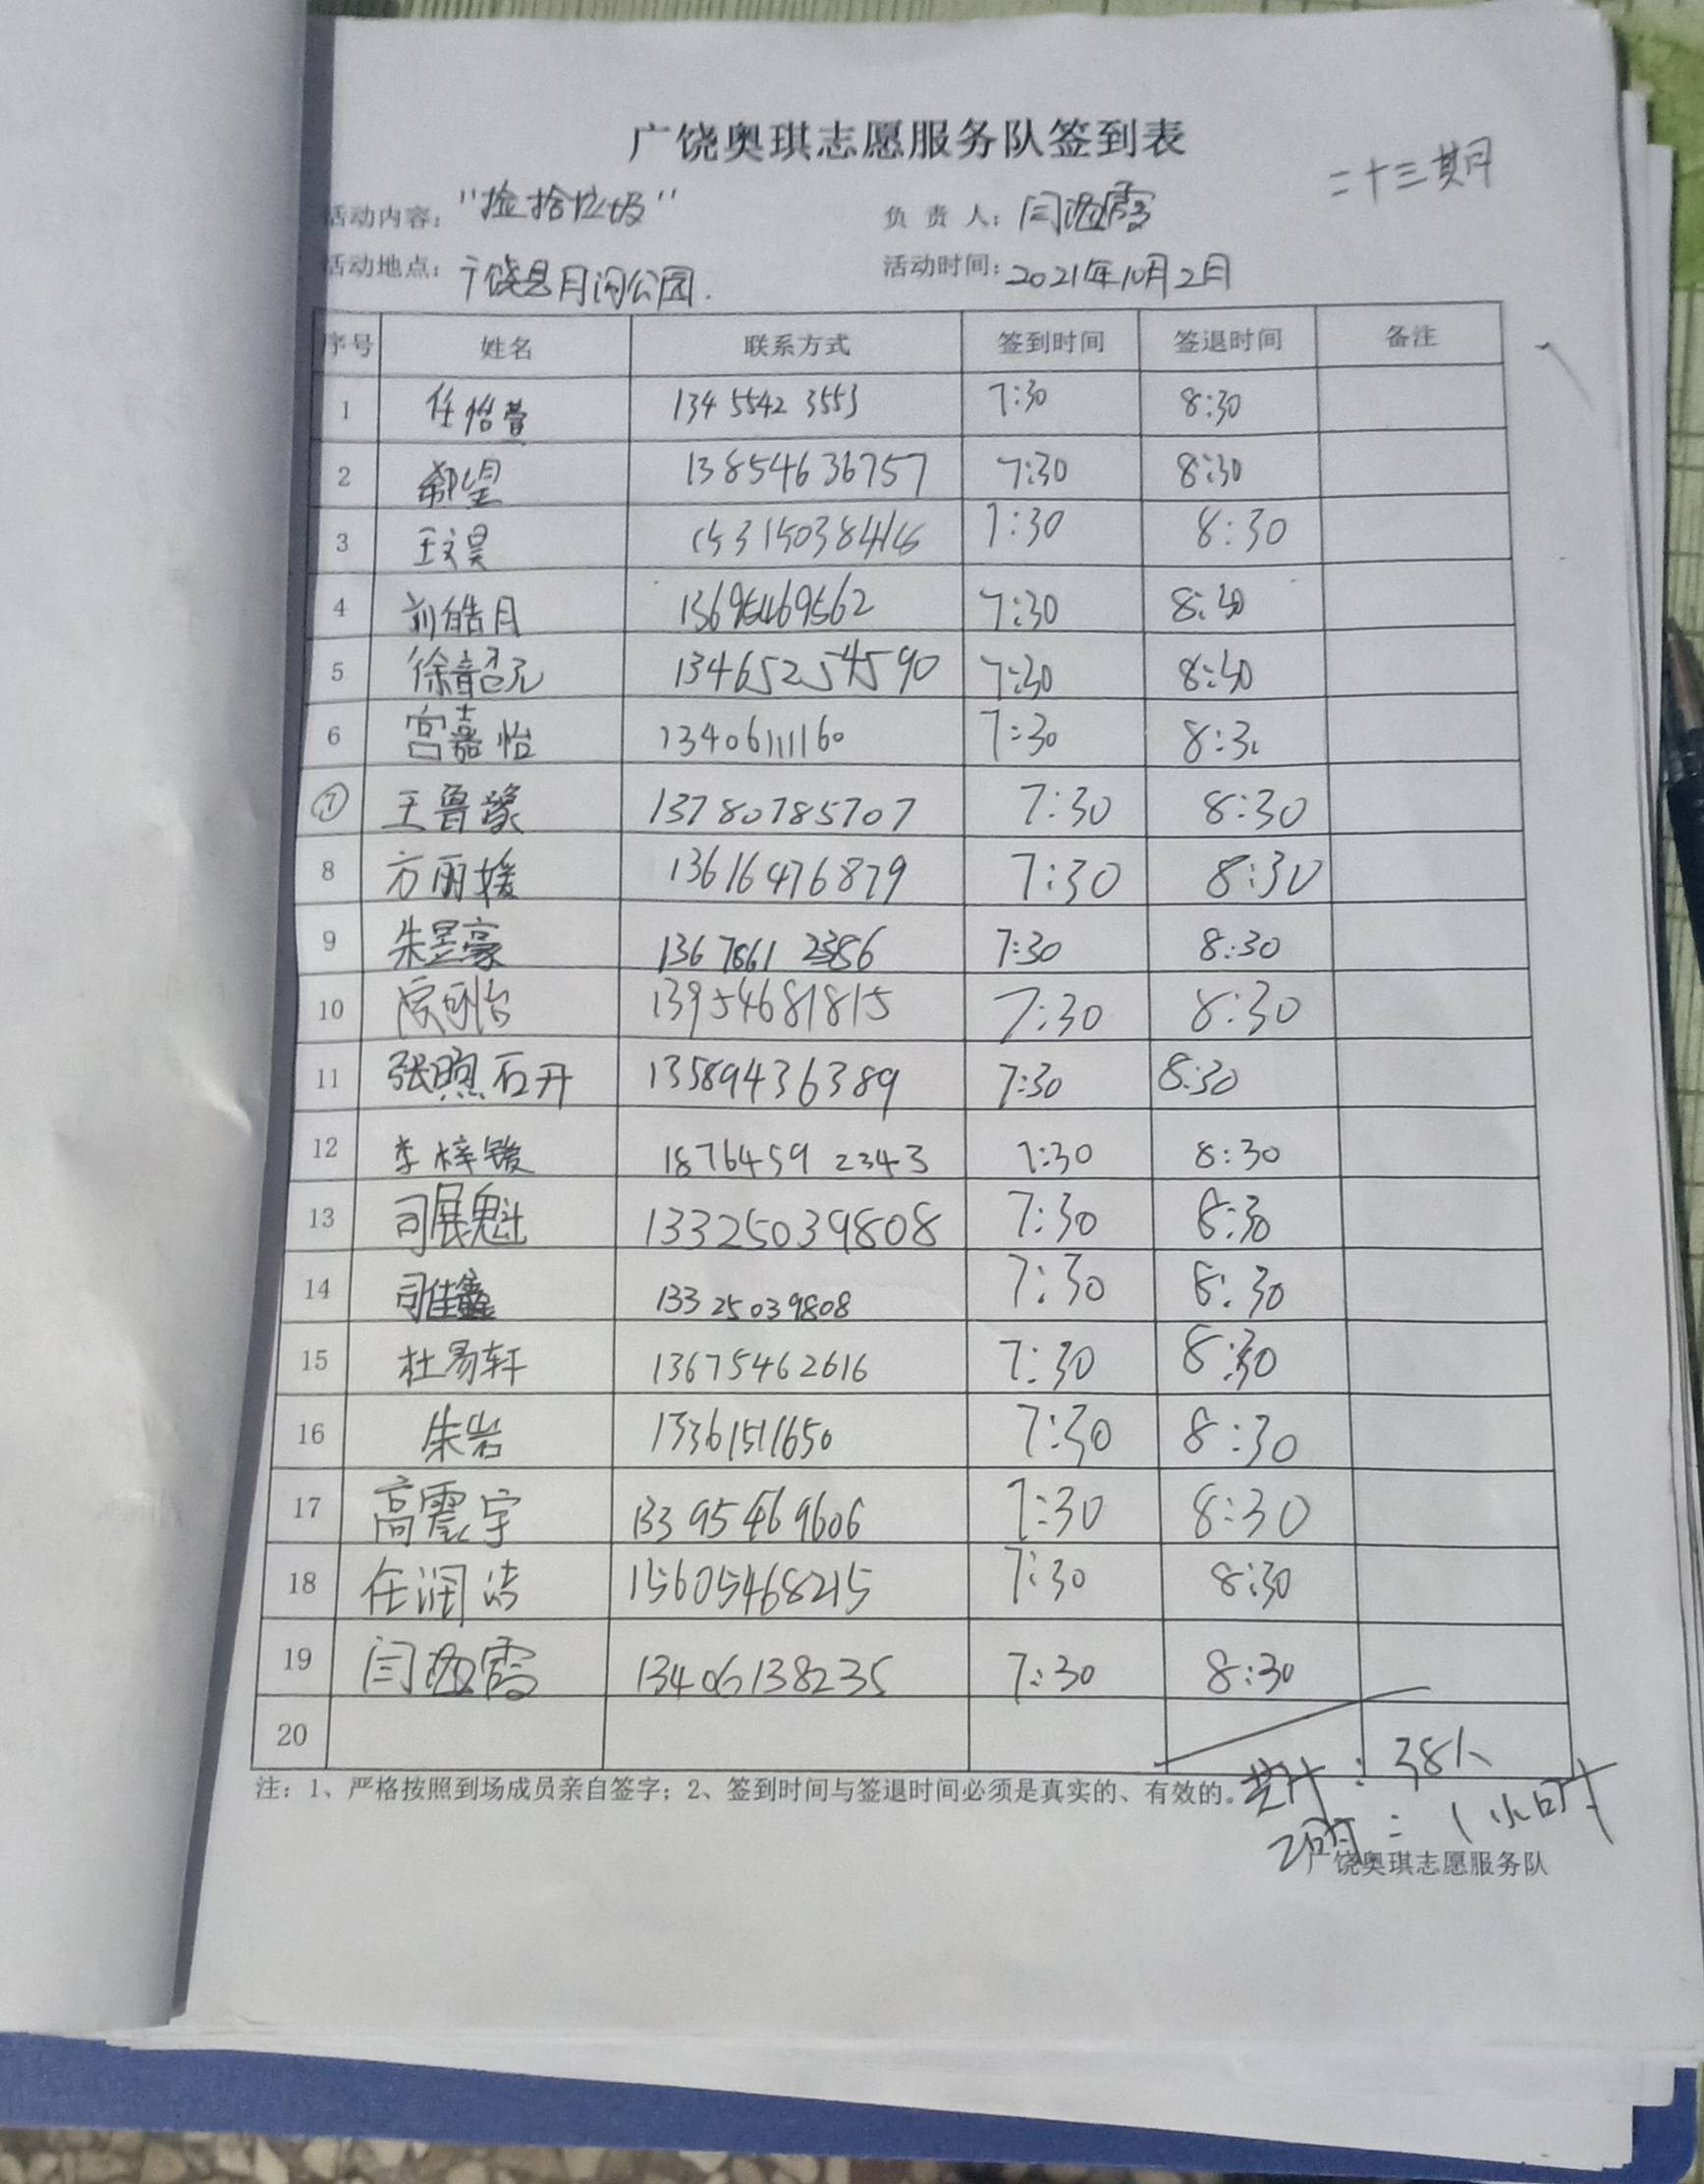 广饶奥琪志愿服务队签到表
二十三期
活动内容：“捡拾垃圾” 负责人：闫海霞
活动地点：广饶县月河公园. 活动时间：2021年10月2日
序号 姓名 联系方式 签到时间 签退时间 备注
1 任怡萱 134 5542 3553 7:30 8:30
2 望 13854636757 7:30 8:30
3 王文昊 7:30 8:30
4 刘皓月 13695469562 7:30 8:30
5 徐韶元 13465254590 7:30 8:30
6 宫嘉怡 13406111160 7:30 8:30
7 王鲁豫 13780785707 7:30 8:30
8 方丽媛 13616476879 7:30 8:30
9 朱昱豪 136 7861 2386 7:30 8:30
10 13954681815 7:30 8:30
11 张煦石开 13589436389 7:30 8:30
12 李梓锾 1876459 2343 7:30 8:30
13 司展魁 13325039808 7:30 8:30
14 司佳鑫 133 25039808 7:30 8:30
15 杜易轩 13675462616 7:30 8:30
16 朱岩 13361511650 7:30 8:30
17 高震宇 133 95469606 7:30 8:30
18 任润洁 15605468215 7:30 8:30
19 闫海霞 13406138235 7:30 8:30
20
注：1、严格按照到场成员亲自签字；2、签到时间与签退时间必须是真实的、有效的。
共计：38人
工时：1小时
广饶奥琪志愿服务队